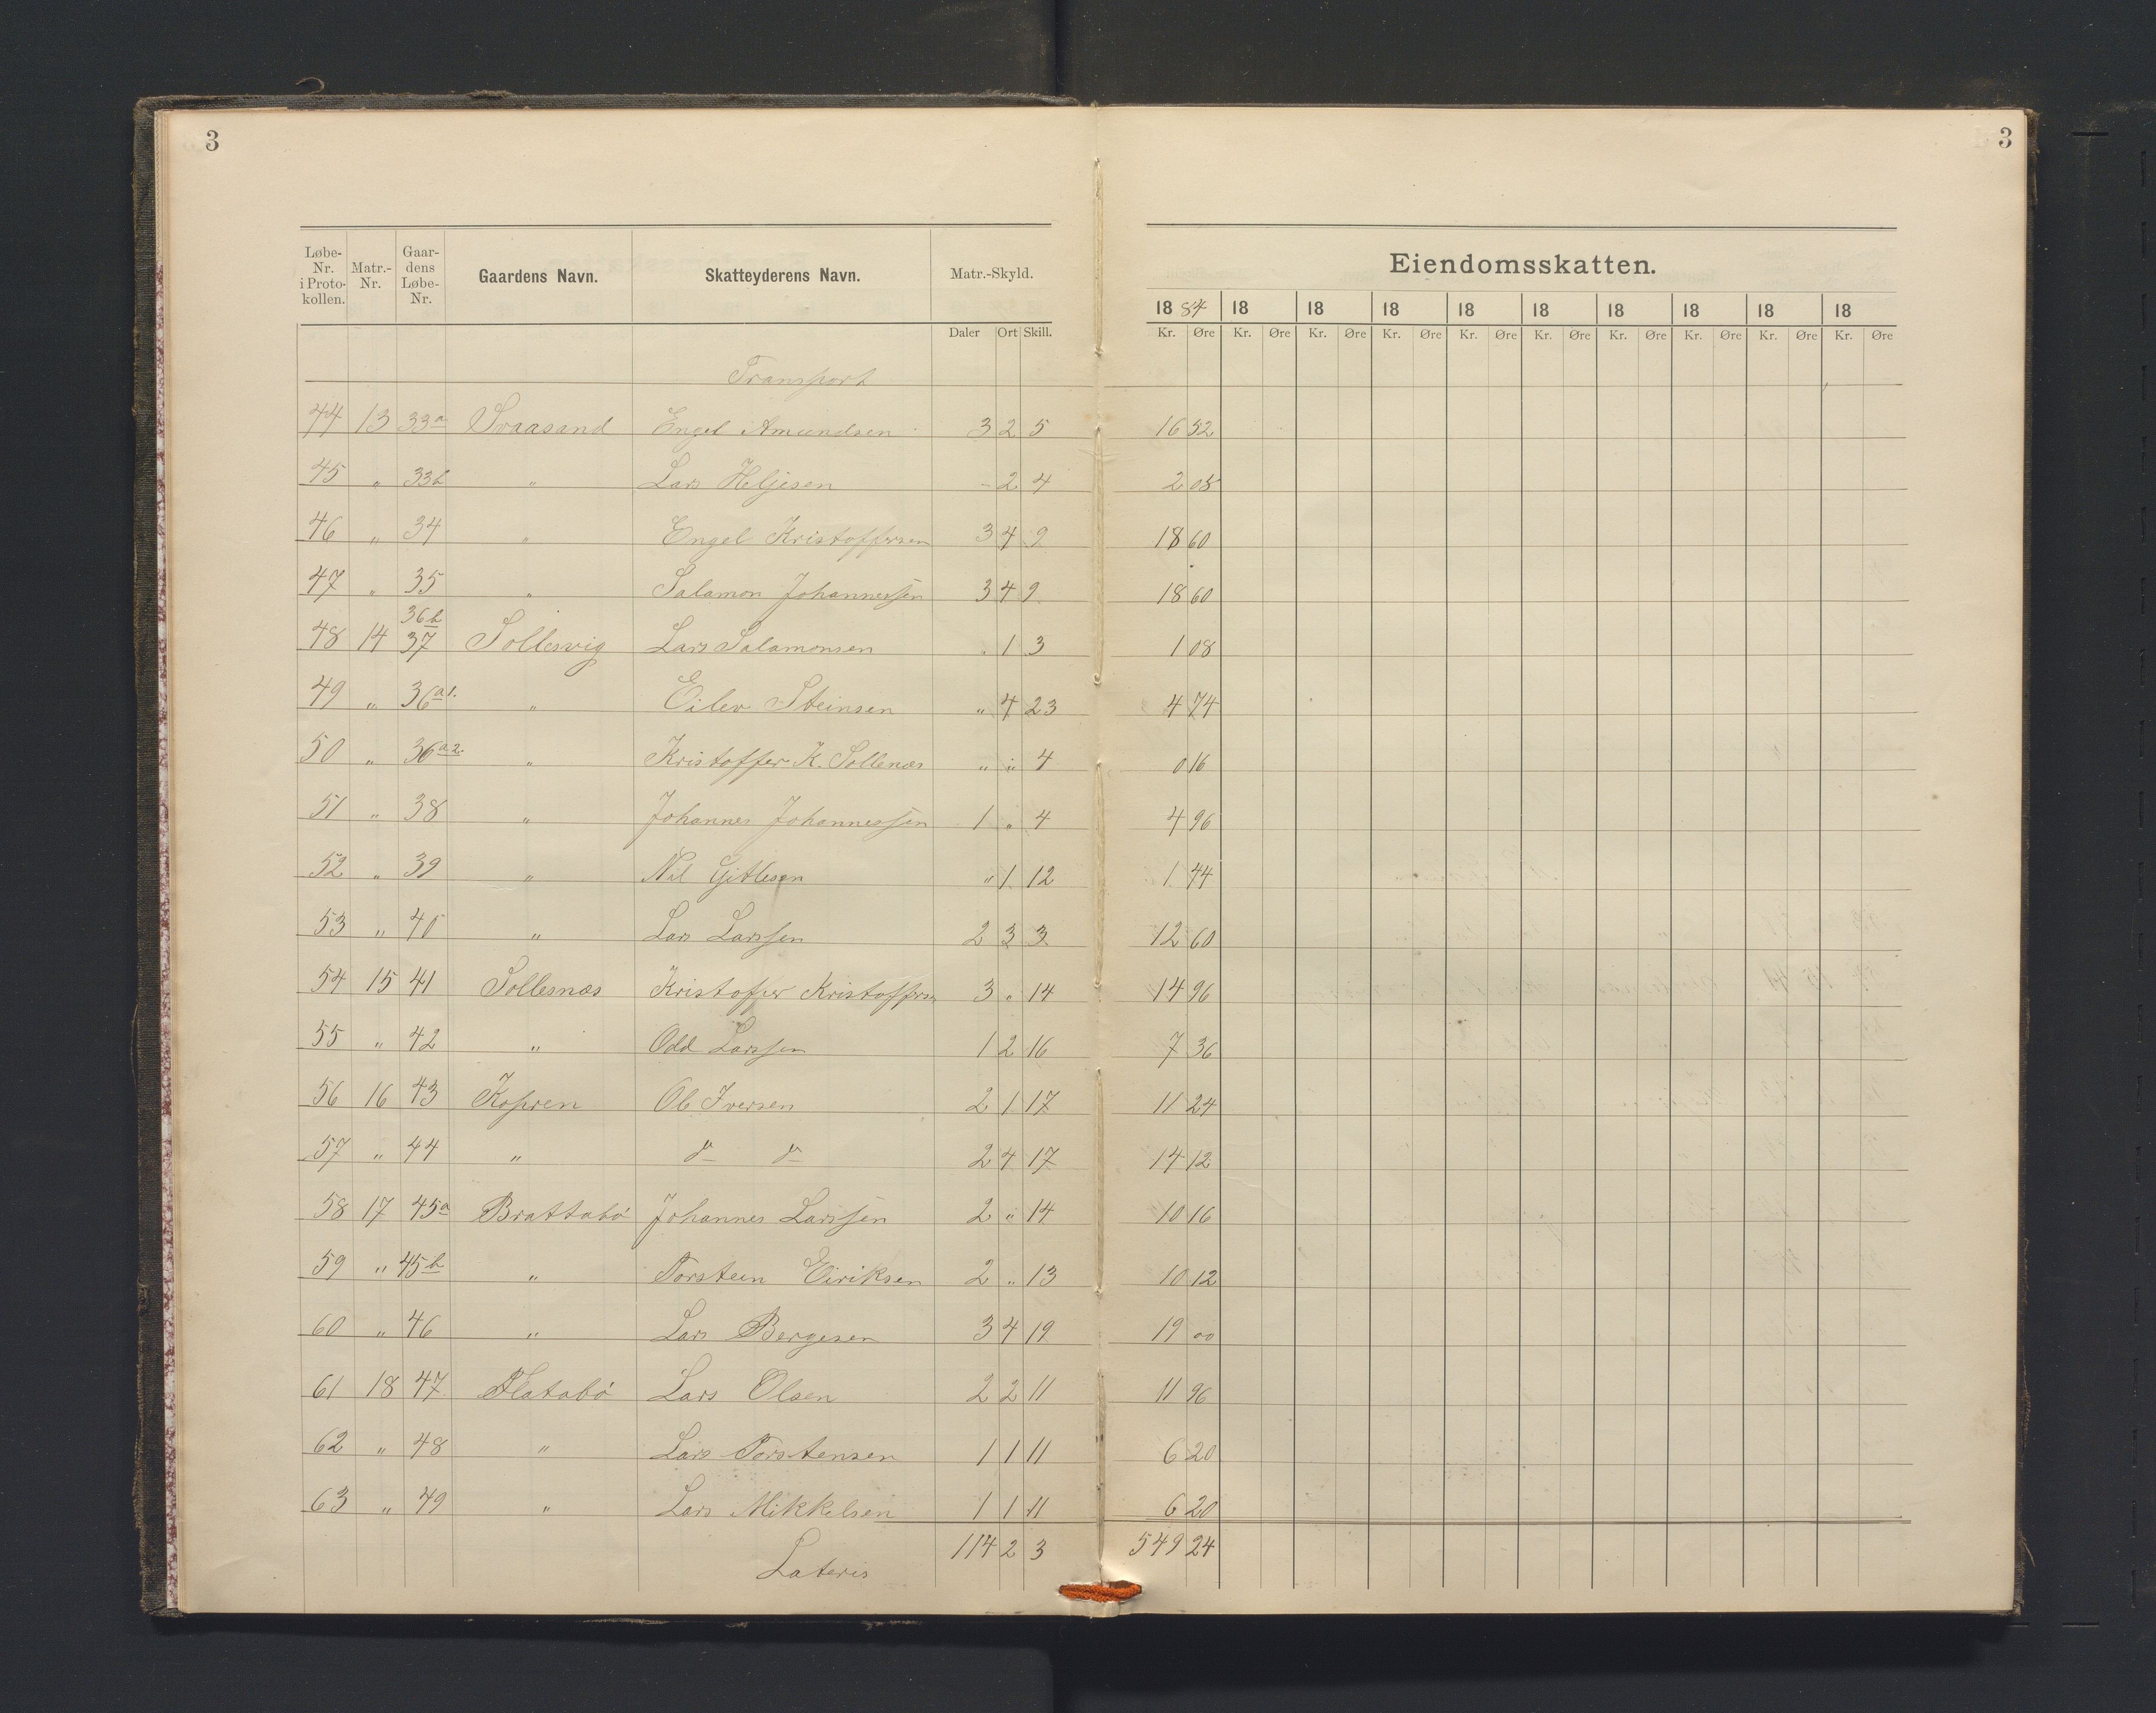 3
3
Løbe-Nr. i Proto-kollen. Matr.-Nr. Gaar-dens Løbe-Nr. Gaardens Navn. Skatteyderens Navn. Matr.-Skyld. Eiendomsskatten.
1884 18 18 18 18 18 18 18 18 18
Daler Ort Skill. Kr. Øre Kr. Øre Kr. Øre Kr. Øre Kr. Øre Kr. Øre Kr. Øre Kr. Øre Kr. Øre Kr. Øre
Transport
44 13 33a Svaasand Engel Amundsen 3 2 5 16 52
45 " 33b " Lars Heljesen - 2 4 2 08
46 " 34 " Engel Kristoffersen 3 4 9 18 60
47 " 35 " Salamon Johannessen 3 4 9 18 60
48 14 36b 37 Sollesvig Lars Salamonsen . 1 3 1 08
49 " 36a1. " Eilev Steinsen " 4 23 4 74
50 " 36a2. " Kristoffer K. Sollenæs " " 4 0 16
51 " 38 " Johannes Johannessen 1 " 4 4 96
52 " 39 " Nil Gitlesen " 1 12 1 44
53 " 40 " Lars Larssen 2 3 3 12 60
54 15 41 Sollesnæs Kristoffer Kristoffersen 3 " 14 14 96
55 " 42 " Odd Larssen 1 2 16 7 36
56 16 43 Kopren Ole Iversen 2 1 17 11 24
57 " 44 " do do 2 4 17 14 12
58 17 45a Brattabö Johannes Larssen 2 " 14 10 16
59 " 45b " Torsteen Eiriksen 2 " 13 10 12
60 " 46 " Lars Bergesen 3 4 19 19 00
61 18 47 Flatabö Lars Olsen 2 2 11 11 96
62 " 48 " Lars Torstensen 1 1 11 6 20
63 " 49 " Lars Mikkelsen 1 1 11 6 20
Lateris 114 2 3 549 24